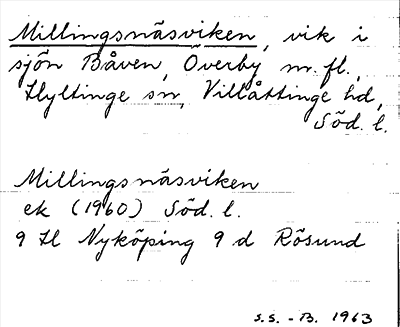 Millingsnäsviken, vik i
sjön Båven, Överby m. fl.,
Hyltinge sn, Villåttinge hd,
Söd. l.
Millingsnäsviken
ek (1960) Söd. l.
9 H Nyköping 9 d Rösund
S.S. - B. 1963